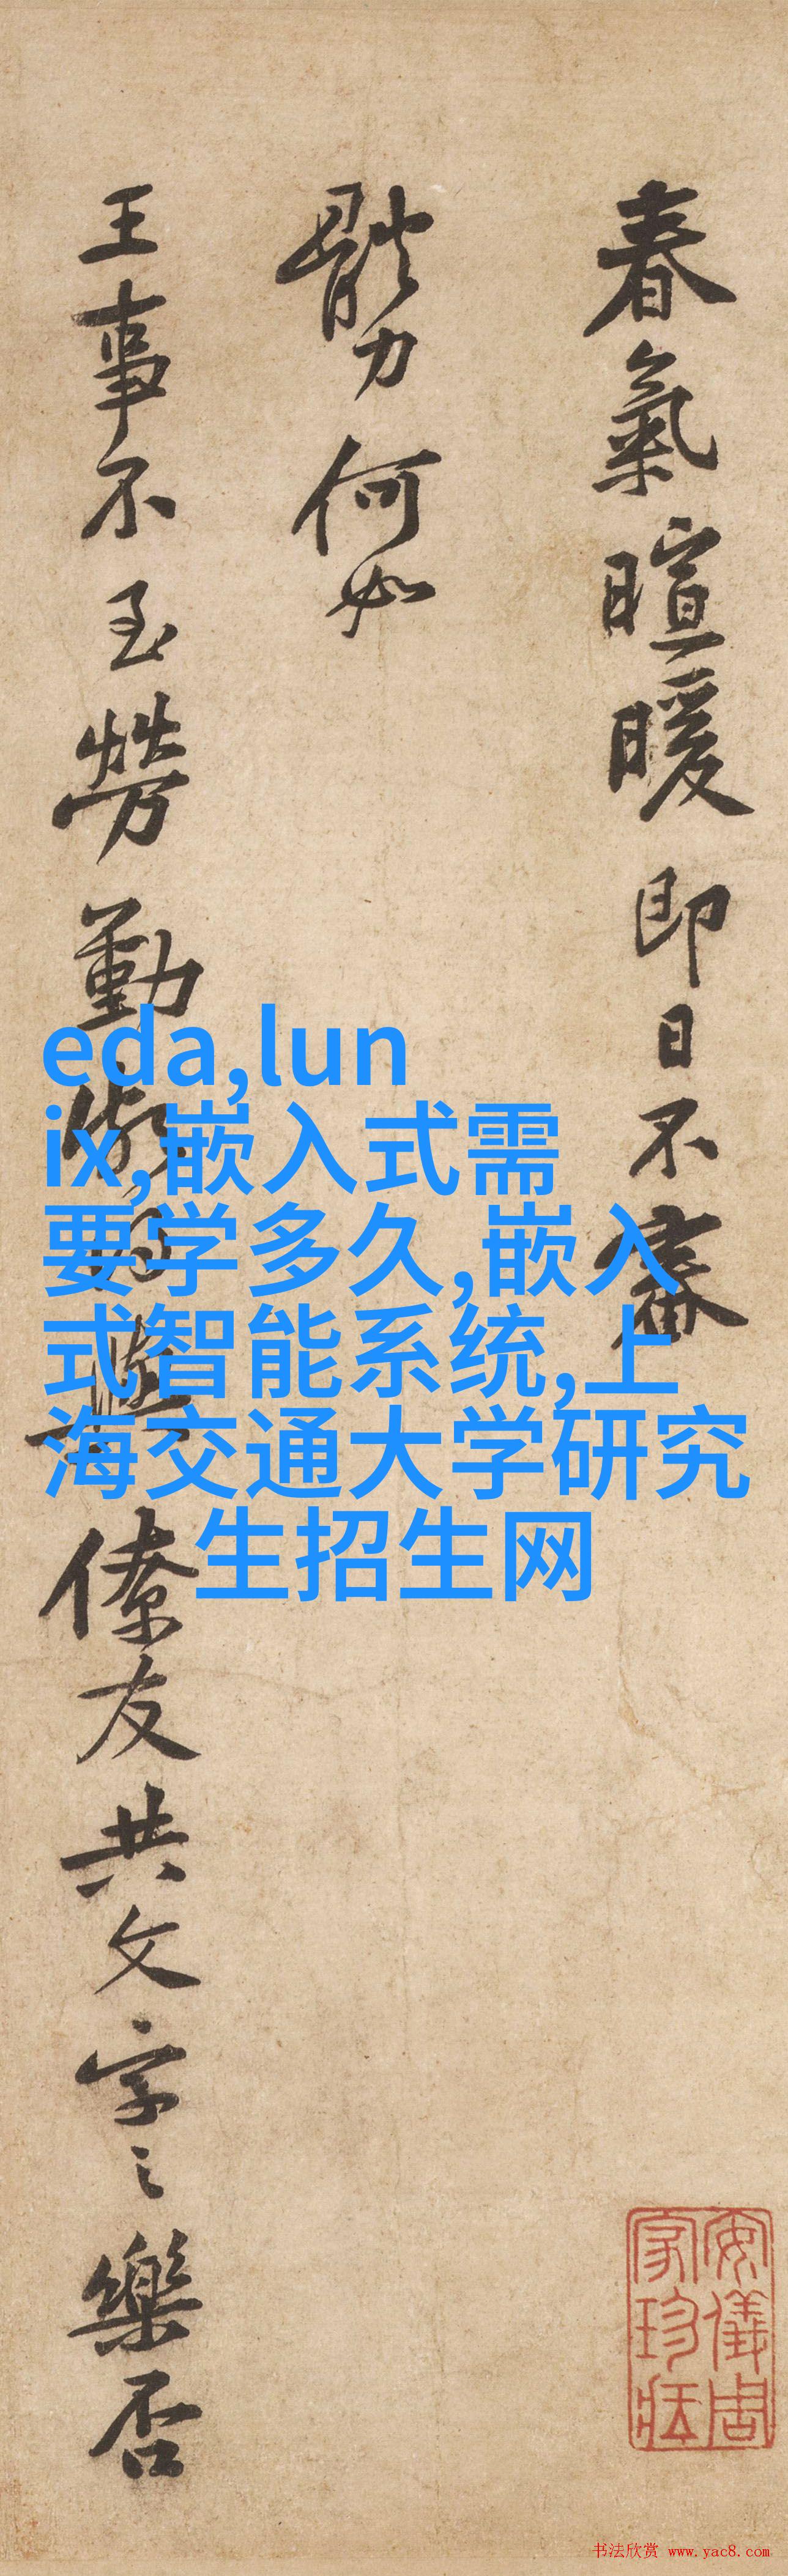 春氣暄暖即日不審
體力何如
王事不至勞勤僚友共文字之樂否
eda,lun
ix,嵌入式需
要学多久,嵌入
式智能系统,上
海交通大学研究
生招生网
安儀周
家珍藏
书法欣赏 www.yac8.com